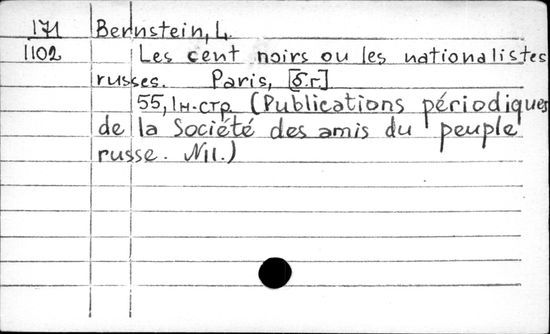 171 Bernstein, L.
1102 Les cent noirs ou les nationalistes
russes. Paris, [б.г.]
55, 1н.стр (Publications périodiques
de la Société des amis du peuple
russe. N11.)